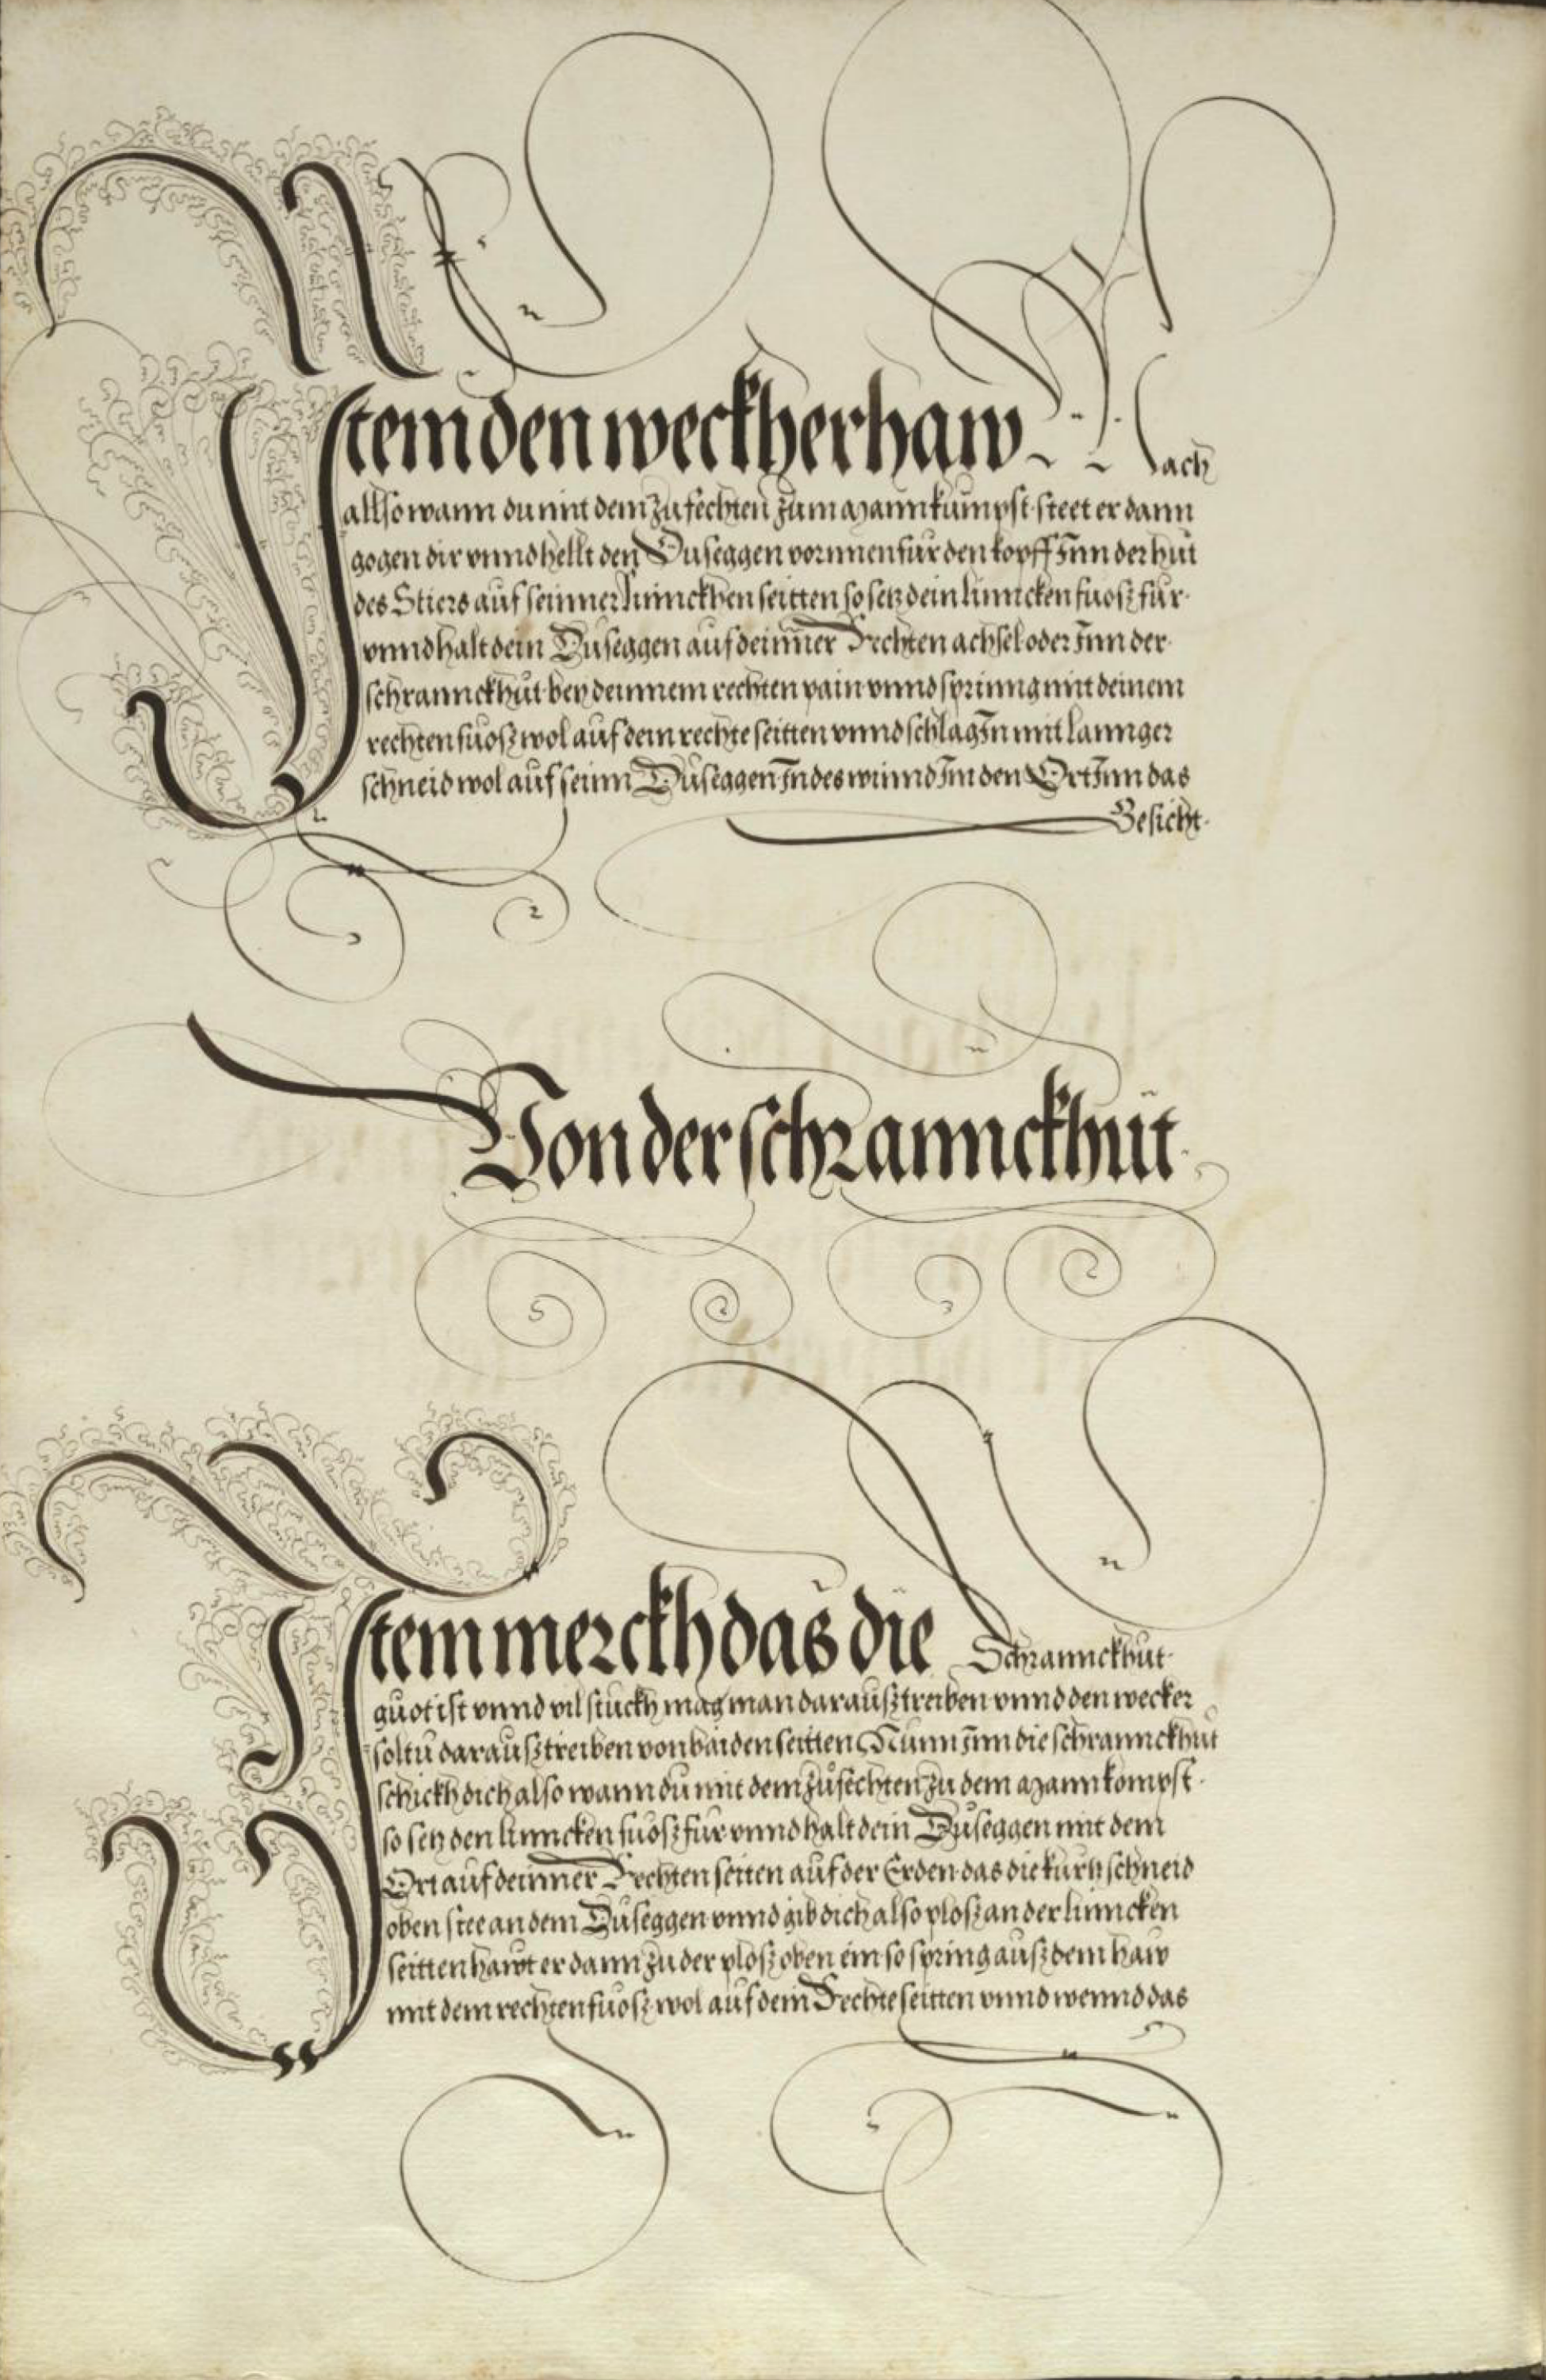 Item den weckherhaw Mach
allso wann du mit dem zufechten zum Mann kumpst steet er dann
gogen dir vnnd hellt den Duseggen vornnen für den kopff Inn der hůt
des Stiers auf seinner linnckhen seitten so setz dein linncken fuosz für
vnnd halt dein Duseggen auf deinner Rechten achsel oder Inn der
schrannckhůt bey deinnem rechten pain vnnd sprinng mit deinem
rechten fuosz wol auf dein rechte seitten vnnd schlag In mit lannger
schneid wol auf seinn Duseggen Indes winnd Im den Ort Inn das
Gesicht
Von der schranncckhůt
Item merckh das die Schrannckhůt
guot ist vnnd vil stuckh mag man darausz treiben vnnd den wecker
soltu darausz treiben von baiden seitten Nunn Inn die schrannckhůt
schickh dich also wann du mit dem zůfechten zu dem Mann kompst
so setz den linncken fuosz für vnnd halt dein Duseggen mit dem
Ort auf deinner Rechten seiten auf der Erden das die kurtz schneid
oben stee an dem Duseggen vnnd gib dich also plosz an der linncken
seitten hawt er dann zu der plosz oben ein so spring ausz dem haw
mit dem rechten fuosz wol auf dein Rechte seitten vnnd wennd das